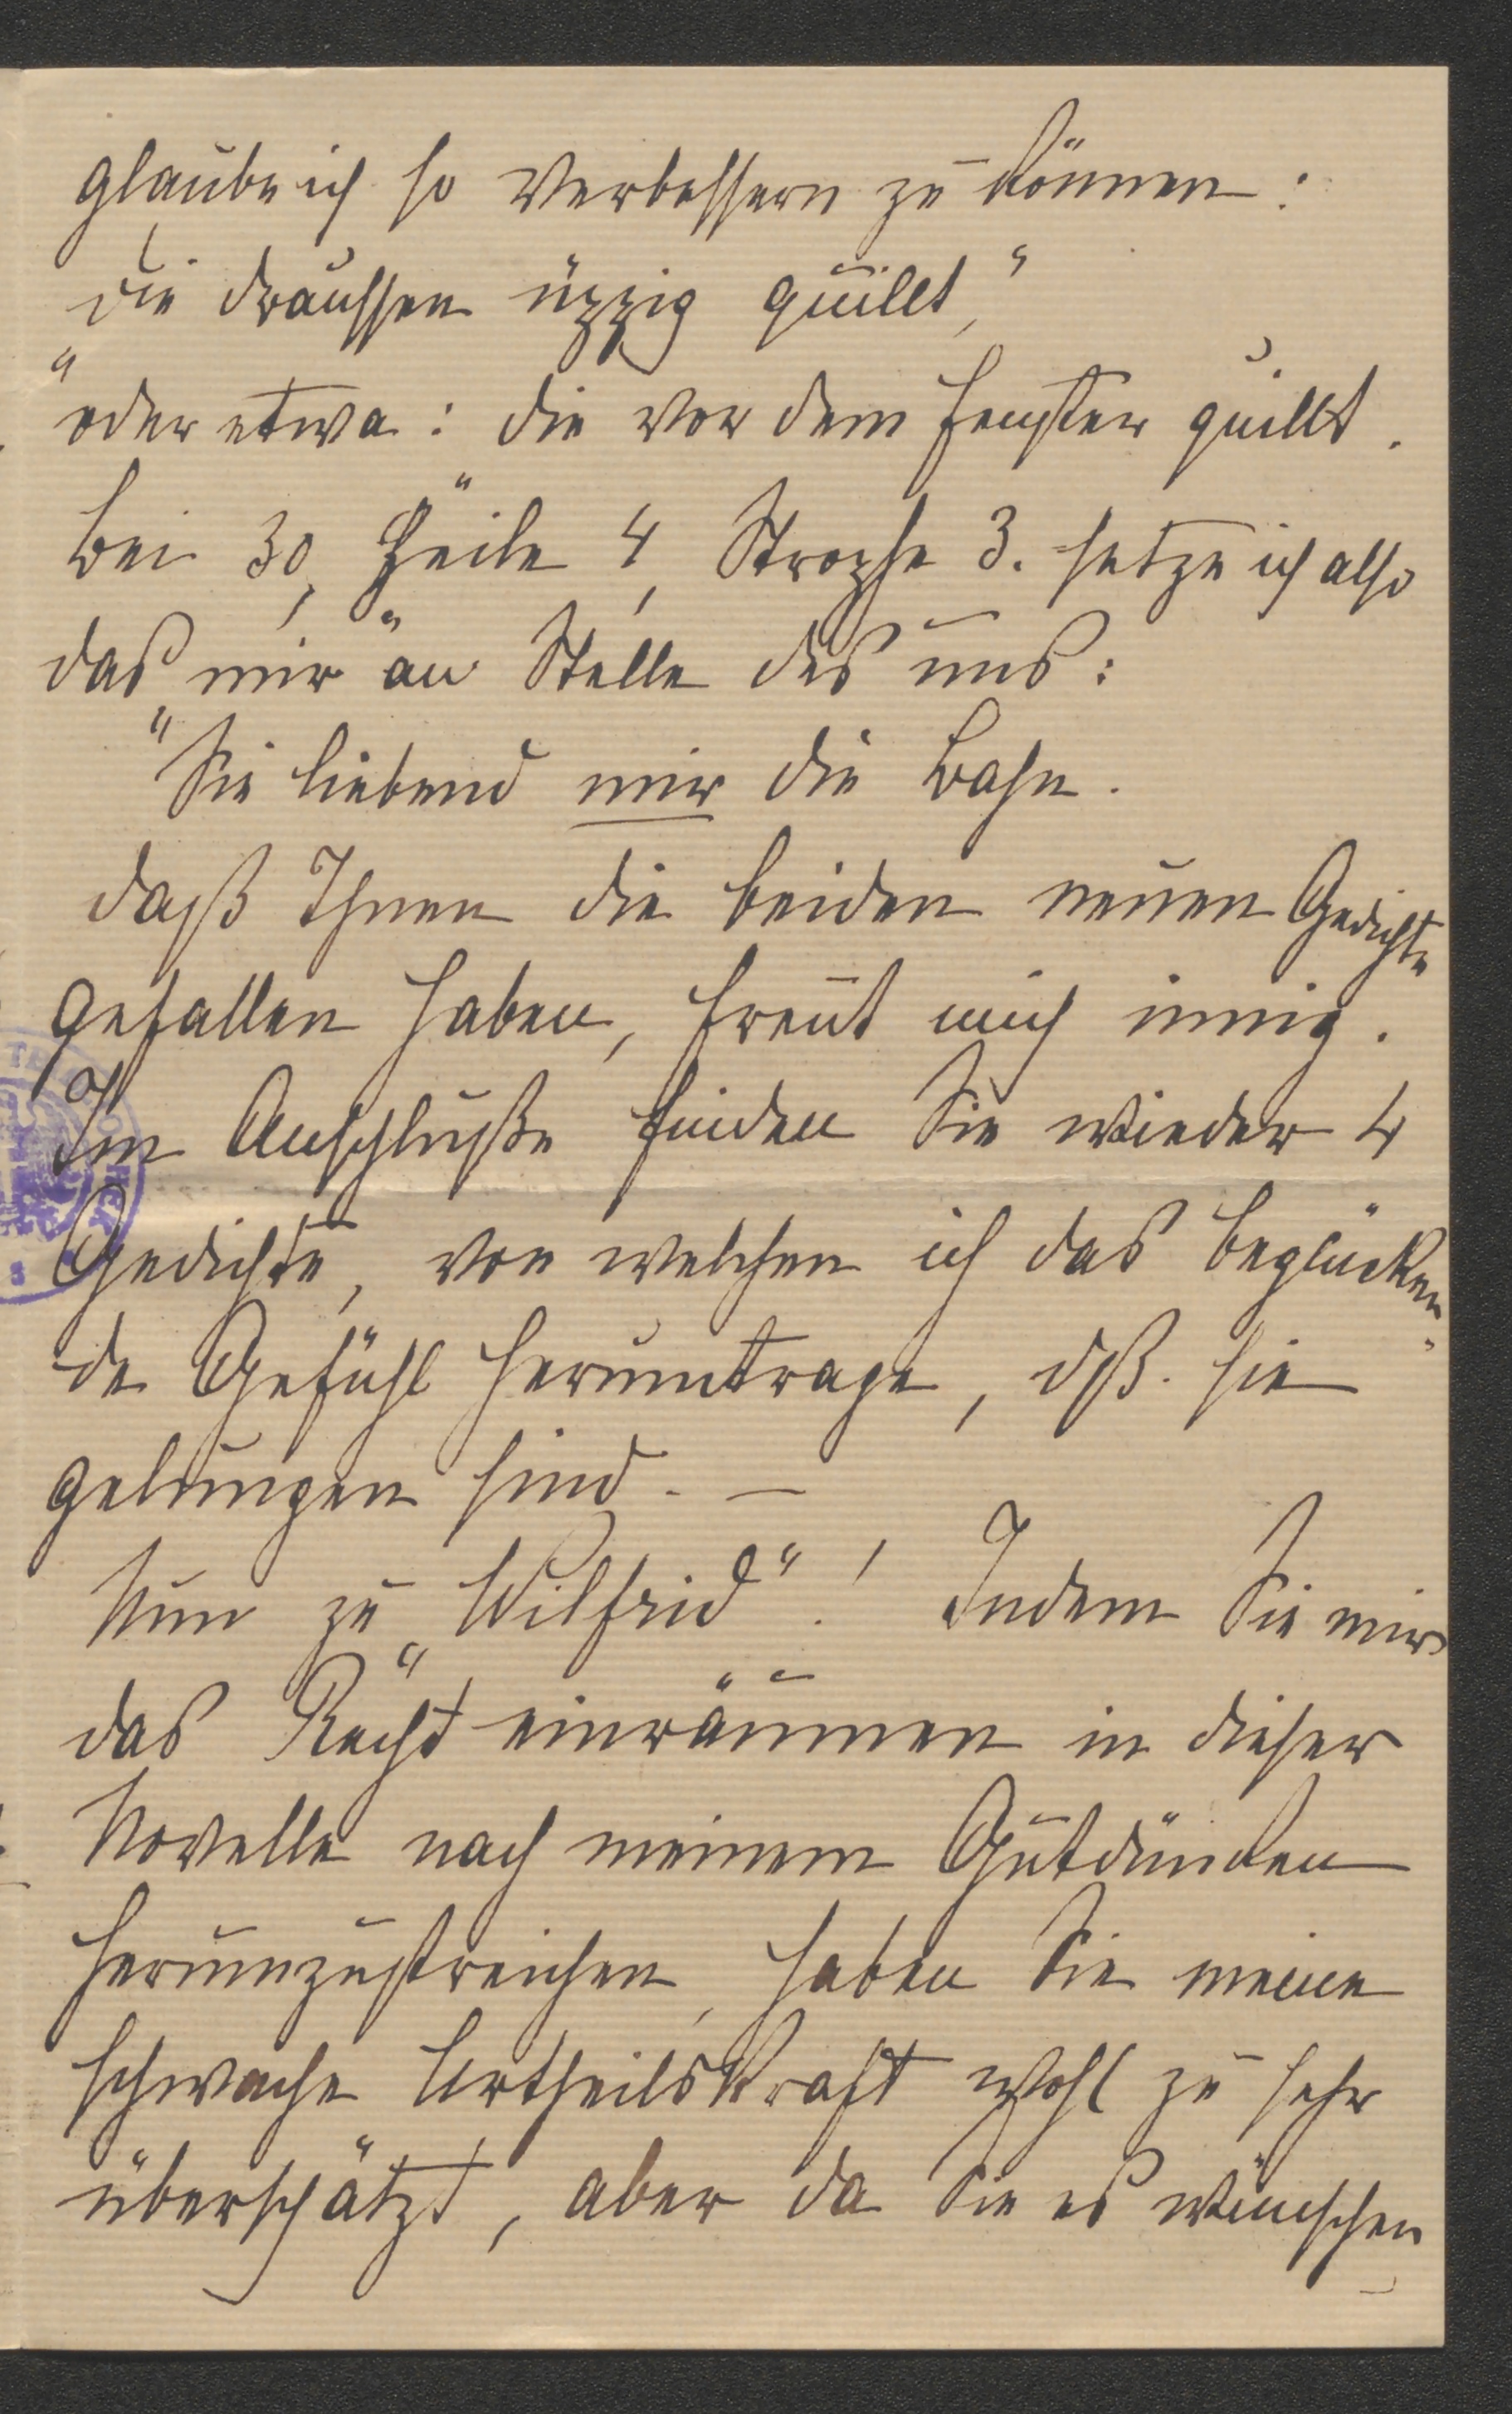 glaube ich so verbessern zu können:
die draussen üppig quillt,"
"oder etwa: die vor dem Fenster quillt.
Bei 30, Zeile 4, Strophe 3. setze ich also
das „mir" an Stelle des uns:
"Sie liebend mir die Bahn.
Daß Ihnen die beiden neuen Gedichte
gefallen haben, freut mich innig.
Im Anschluße finden Sie wieder 4
Gedichte, von welchen ich das beglücken-
de Gefühl herumtrage, dß. sie
gelungen sind. —
Nun zu „Wilfrid"! Indem Sie mir
das Recht einräumen in dieser
Novelle nach meinem Gutdünken
herumzustreichen, haben Sie meine
schwache Urtheilskraft wohl zu sehr
überschätzt, aber da Sie es wünschen